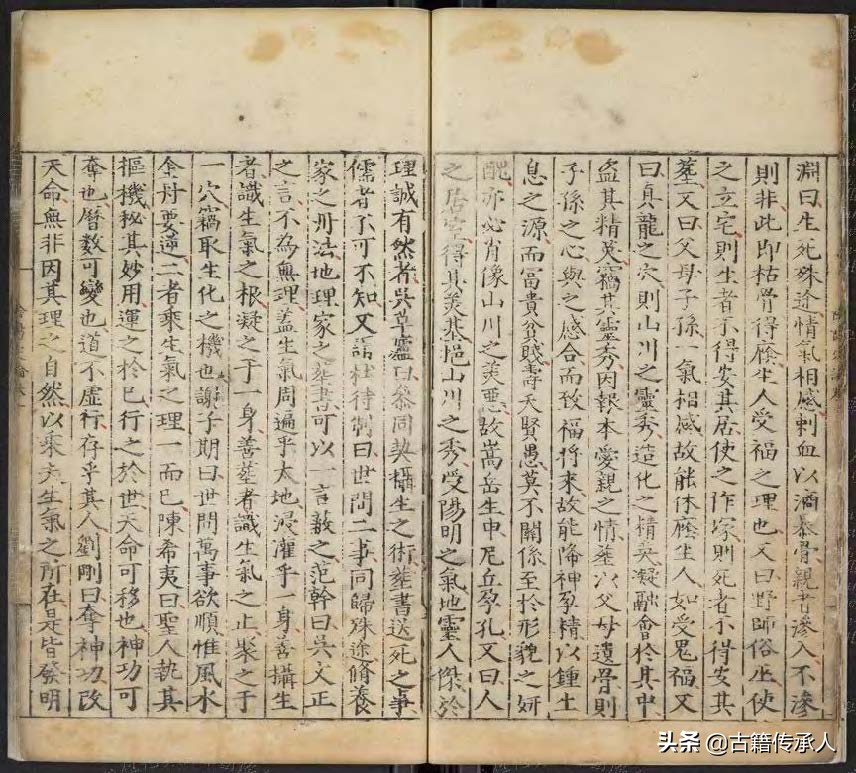 淵曰生死殊途情氣相感剌血以滴㤗骨親者滲入不滲
則非此即枯骨得廕生人受福之理也又曰野師俗巫使
之立宅則生者不得安其居使之作冢則死者不得安其
塟又曰父母子孫一氣相感故能体廕生人如受鬼福又
曰真龍之穴則山川之靈秀造化之精英凝融會於其中
盗其精英竊其靈秀因報本愛親之情塟以父母遺骨則
子孫之心與之感合而致福將來故能降神孕精以鍾土
息之源而富貴貧賤壽夭賢愚莫不關係至於形貌之妍
醜亦必肖像山川之美惡故嵩岳生申尼丘孕孔又曰人
之居宅得其美基挹山川之秀受陽明之氣地靈人傑於
理誠有然者吳草廬曰叅同契攝生之術葬書送死之事
儒者不可不知又語杜待制曰世間二事同歸殊途脩養
家之丹法地理家之葬書可以一言蔽之范幹曰吳文正
之言不為無理盖生氣周遍乎太地浸灌乎一身善攝生
者識生氣之根凝之于一身善塟者識生氣之止聚之于
一穴竊取生化之機也謝子期曰世間萬事欲順惟風水
金丹要逆二者乘生氣之理一而已陳希夷曰聖人執其
樞機秘其妙用運之於已行之於世天命可移也神功可
奪也曆數可變也道不虛行存乎其人劉剛曰奪神功改
天命無非因其理之自然以乘夫生氣之所在是皆發明
头条 @古籍传承人